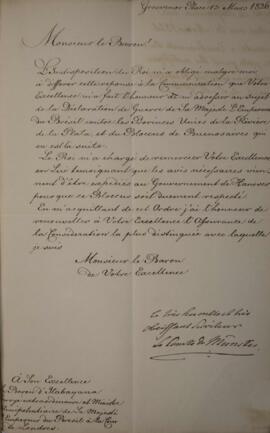 Grosvenor Place 13 Mars 1826
Monsieur le Baron!
L'Indisposition du Roi m'a obligé malgré moi
à différer cette réponse à la Communication que Votre
Excellence m'a fait l'honneur de m'adresser au Sujet
de la Déclaration de Guerre de Sa Majesté l'Empereur
du Brésil contre les Provinces Unies de la Rivière
de la Plata, et du Blocus de Buenosayres qui
en est la suite.
Le Roi m'a chargé de remercier Votre Excellence
en Lui témoignant que les avis nécessaires vien-
nent d'être expédiés au Gouvernement de Hanovre
pour que ce Blocus soit duement respecté.
En m'acquittant de cet Ordre, j'ai l'honneur de
renouveller à Votre Excellence l'Assurance de
la Considération la plus distinguée avec laquelle
je suis
Monsieur le Baron
de Votre Excellence
le très humble et très
obéissant Serviteur
Le Comte de Münster
À Son Excellence
le Baron d'Itabayana
Envoyé extraordinaire et Ministre
Plénipotentiaire de Sa Majesté
l'Empereur du Brésil à la Cour
de Londres